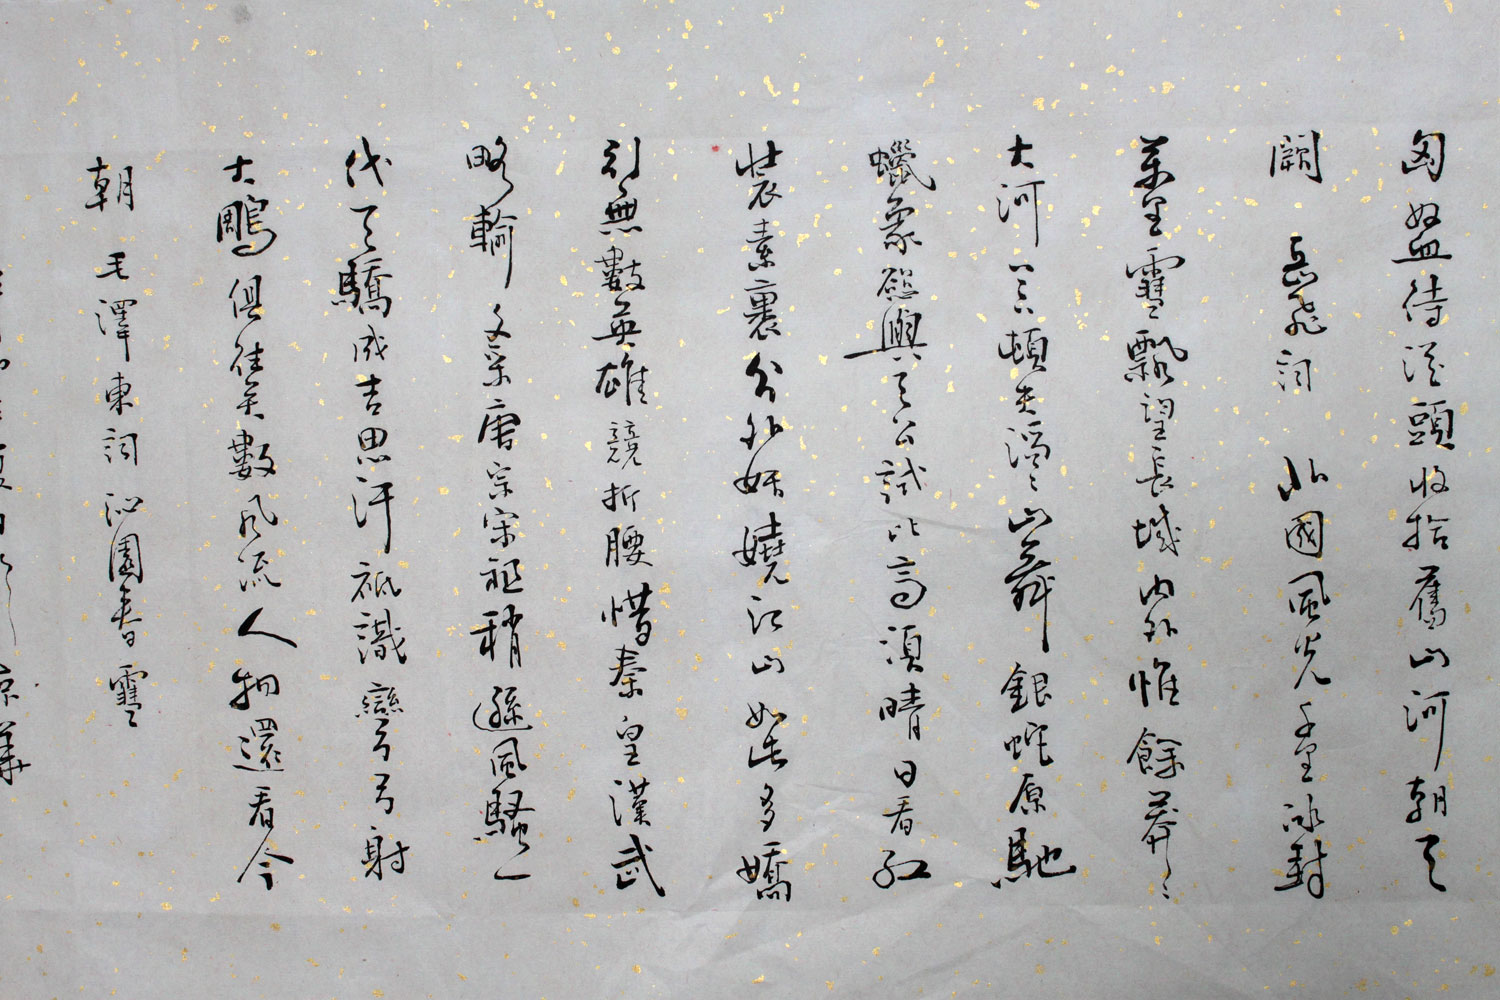 匈奴血待從頭收拾舊山河朝天
闕 岳飛詞 北國風光千里冰封
萬里雪飄望長城內外惟餘莽〻
大河上下頓失滔〻山舞銀蛇原馳
蠟象慾與天公試比高須晴日看紅
裝素裹分外妖嬈江山如此多嬌
引無數英雄競折腰惜秦皇漢武
略輸文采唐宗宋祖稍遜風騷一
代天驕成吉思汗祇識彎弓射
大鵰俱往矣數風流人物還看今
朝 毛澤東詞 沁園春雪